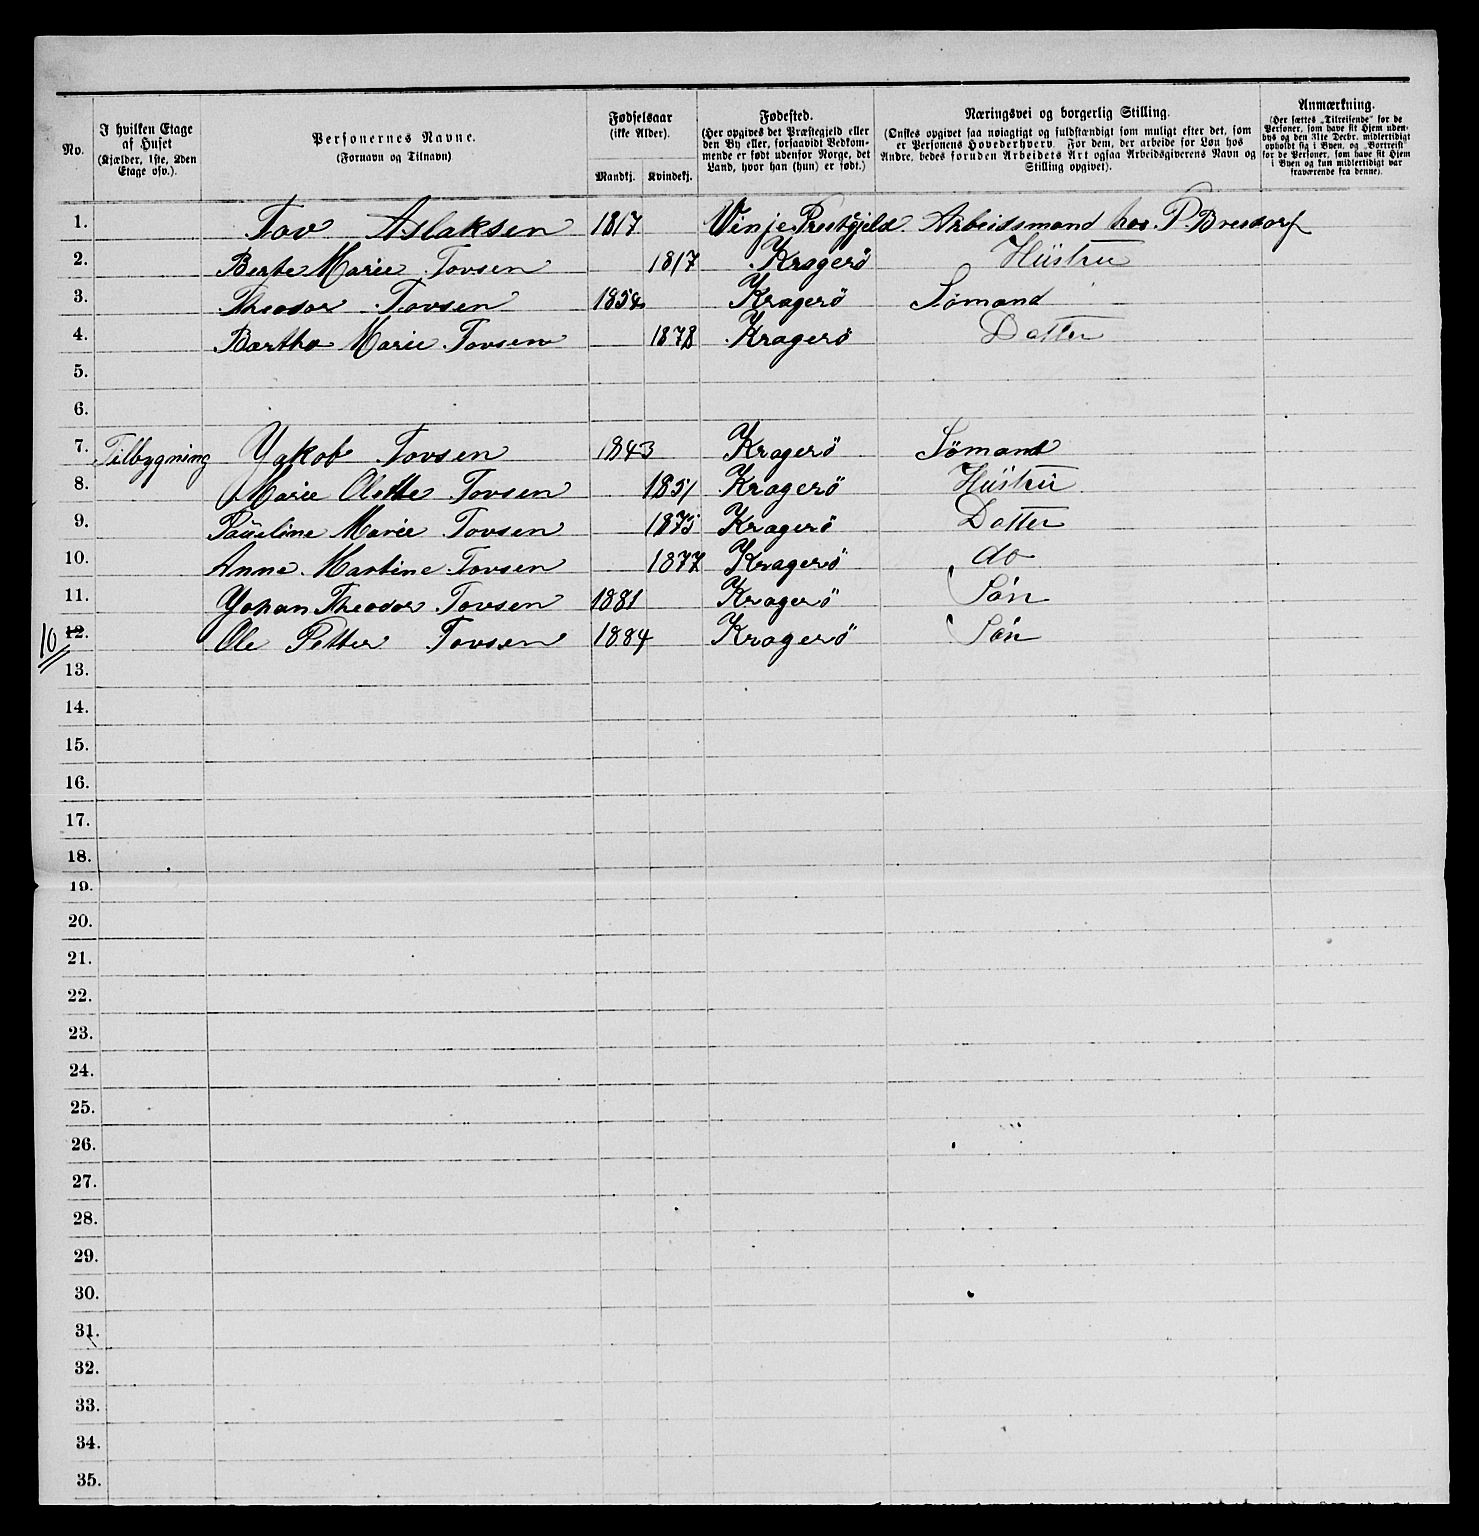 No.
I hvilken Etage af Huset (Kjælder, 1ste, 2den Etage osv.).
Personernes Navne. (Fornavn og Tilnavn)
Fødselsaar (ikke Alder).
Mandkj. Kvindekj.
Fødested. (Her opgives det Præstegjeld eller den By eller, forsaavidt Vedkommende er født udenfor Norge, det Land, hvor han (hun) er født.)
Næringsvei og borgerlig Stilling. (Ønskes opgivet saa nøiagtigt og fuldstændigt som muligt efter det, som er Personens Hovederhverv. For dem, der arbeide for Løn hos Andre, bedes foruden Arbeidets Art ogsaa Arbeidsgiverens Navn og Stilling opgivet).
Anmærkning. (Her sættes „Tilreisende“ for de Personer, som have sit Hjem udenbys og den 31te Decbr. midlertidigt opholdt sig i Byen, og „Bortreist“ for de Personer, som have sit Hjem i Byen og kun midlertidigt var fraværende fra denne).
1. Tov Aslaksen 1817 Vinje Prestgjeld Arbeidsmand hos P. Bredorf
2. Berte Marie Tovsen 1817 Kragerö Hüstru
3. Theodor Tovsen 1854 Kragerö Sömand
4. Bartha Marie Tovsen 1878 Kragerö Datter
5.
6.
7. Tilbygning Yakob Tovsen 1843 Kragerö Sömand
8. Marie Olette Tovsen 1851 Kragerö Hüstru
9. Paüeline Marie Tovsen 1875 Kragerö Datter
10. Anne Martine Tovsen 1877 Kragerö do
11. Yohan Theodor Tovsen 1881 Kragerö Sön
10 12. Ole Petter Tovsen 1884 Kragerö Sön
13.
14.
15.
16.
17.
18.
19.
20.
21.
22.
23.
24.
25.
26.
27.
28.
29.
30.
31.
32.
33.
34.
35.